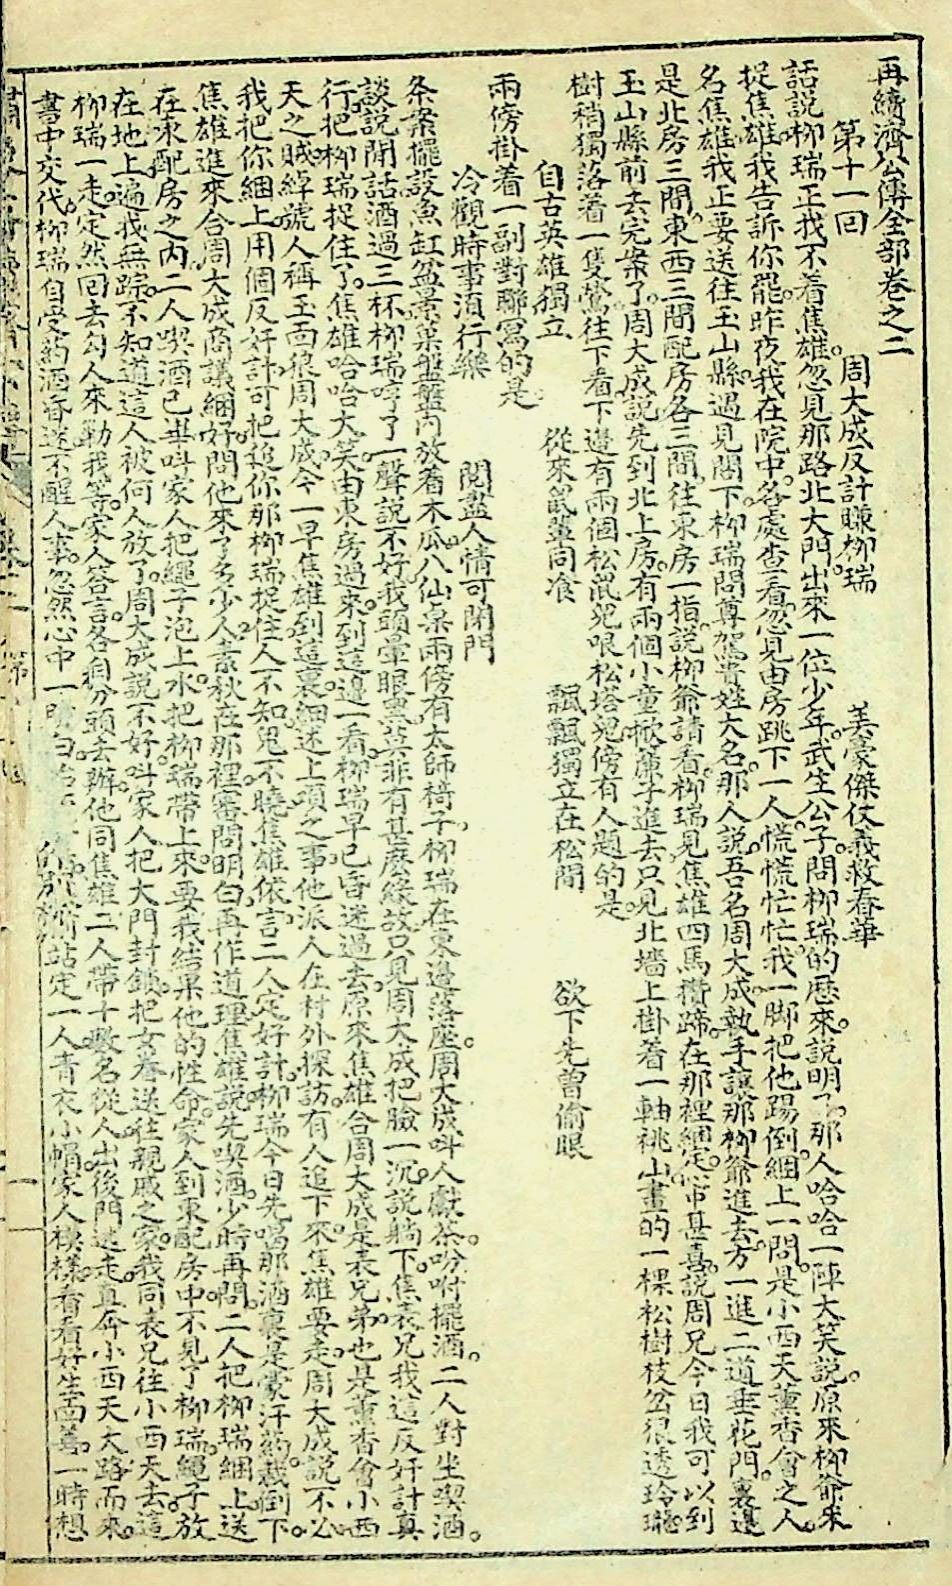 再續濟公傳全部卷之二
第十一回　周大成反計賺柳瑞　美豪傑仗義救春華
話說柳瑞正找不着焦雄。忽見那路北大門出來一位少年。武生公子。問柳瑞的歷來。說明了。那人哈哈一陣大笑說。原來柳爺來
捉焦雄。我告訴你罷。昨夜我在院中。各處查看。忽見由房跳下一人。慌慌忙忙。我一脚把他踢倒。綑上一問。是小西天薰香會之人。
名焦雄。我正要送往玉山縣。遇見閣下。柳瑞問尊駕貴姓大名。那人說。吾名周大成。執手讓那柳爺進去。方一進二道垂花門。裏邊
是北房三間。東西三間配房各三間。往東房一指。說柳爺請看。柳瑞見焦雄四馬攢蹄。在那裡綑定。心中甚喜。說周兄今日我可以到
玉山縣前去完案了。周大成說先到北上房。有兩個小童掀簾子進去。只見北墻上掛着一軸挑山畫的一棵松樹枝岔狠透玲瓏。
樹稍獨落着一隻鶯。往下看。下邊有兩個松鼠兒哏松塔兒。傍有人題的是。
自古英雄獨立　從來鼠輩同飡　飄飄獨立在松間　欲下先曾偷眼
兩傍掛着一副對聯寫的是。
冷觀時事湏行樂　閱盡人情可閉門
条案擺設魚缸盆景菓盤盤內放着木瓜。八仙桌兩傍有太師椅子。柳瑞在東邊落座。周大成叫人獻茶。吩咐擺酒。二人對坐喫酒。
談說閒話。酒過三杯。柳瑞哼了一聲。說不好。我頭暈眼黑。莫非有甚麼緣故。只見周大成把臉一沉。說躺下。焦表兄我這反奸計真
行。把柳瑞捉住了。焦雄哈哈大笑。由東房過來。到這邊一看。柳瑞早已昏迷過去。原來焦雄合周大成是表兄弟。也是薰香會小西
天之賊。綽號人稱玉面狼周大成。今一早焦雄到這裏。細述上項之事。他派人在村外探訪。有人追下來。焦雄要走。周大成說不必。
我把你綑上。用個反奸計。可把追你那柳瑞捉住。人不知。鬼不曉。焦雄依言。二人定好計。柳瑞今日先喝那酒裏是蒙汗药。栽倒下。
焦雄進來合周大成商議。綑好。問他來了多少人。素秋在那裡。審問明白。再作道理。焦雄說。先喫酒。少時再問。二人把柳瑞綑上。送
在東配房之內。二人喫酒已畢。叫家人把繩子泡上水。把柳瑞帶上來。要我結果他的性命。家人到東配房中不見了柳瑞。繩子放
在地上。遍找無踪。不知道這人被何人放了。周大成說不好。叫家人把大門封鎖。把女眷送往親戚之家。我同表兄往小西天去。這
柳瑞一走。定然回去勾人來勦我等。家人答言。各自分頭去辦。他同焦雄二人帶十數名從人。出後門逃走。真奔小西天大路而來。
書中交代。柳瑞自受药酒昏迷不醒人事。忽然心中一明白站定一人青衣小帽家人模樣。看看好生面善。一時想